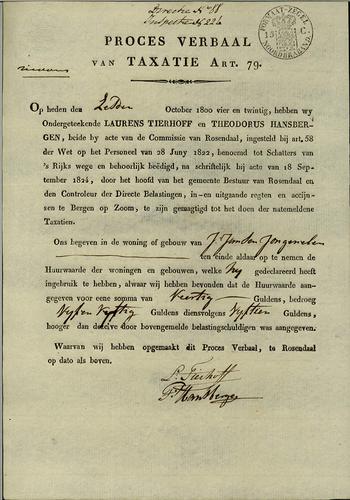 Directie N° 88
Inspectie N° 226
FORMAAT-ZEGEL
15 C
NOORDBRABAND
PROCES VERBAAL
VAN TAXATIE ART. 79.
OP heden den Zesden October 1800 vier en twintig, hebben wy
Ondergeteekende LAURENS TIERHOFF en THEODORUS HANSBER-
GEN, beide by acte van de Commissie van Rosendaal, ingesteld bij art. 58
der Wet op het Personeel van 28 Juny 1822, benoemd tot Schatters van
's Rijks wege en behoorlijk beëdigd, na schriftelijk bij acte van 18 Sep-
tember 1824, door het hoofd van het gemeente Bestuur van Rosendaal en
den Controleur der Directe Belastingen, in-en uitgaande regten en accijn-
sen te Bergen op Zoom, te zijn gemagtigd tot het doen der natemeldene
Taxatien.
Ons hegeven in de woning of gebouw van J Jansen Jongenelen
ten einde aldaar op te nemen de
Huurwaarde der woningen en gebouwen, welke hy gedeclareerd heeft
ingebruik te hebben, alwaar wij hebben bevonden dat de Huurwaarde aan-
gegeven voor eene somma van Veertig Guldens, bedroeg
Vyf en Vyftig Guldens diensvolgens Vyftien Guldens,
hooger dan dezelve door bovengemelde belastingschuldigen was aangegeven.
Waarvan wij hebben opgemaakt dit Proces Verbaal, te Rosendaal
op dato als boven.
L. Tierhoff
T. Hansbergen